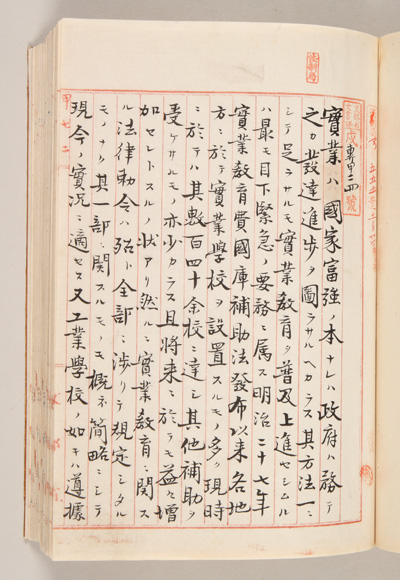 實業ハ國家富強ノ本ナレハ政府ハ務テ
之カ發達進歩ヲ圖ラサルヘカラス其方法一ニ
シテ足ラサルモ實業教育ヲ普及上進セシムル
ハ最モ目下緊急ノ要務ニ属ス明治二十七年
實業教育費國庫補助法發布以来各地
方ニ於テ實業學校ヲ設置スルモノ多ク現時
ニ於テハ其數百四十余校ニ達シ其他補助ヲ
受ケサルモノ亦少カラス且將来ニ於テモ益々増
加セントスルノ状アリ然ルニ實業教育ニ関ス
ル法律勅令ハ殆ト全部ニ渉リテ規定シタル
モノナク其一部ニ関スルモノモ概ネ簡略ニシテ
現今ノ實况ニ適セス又工業學校ノ如キハ遵據